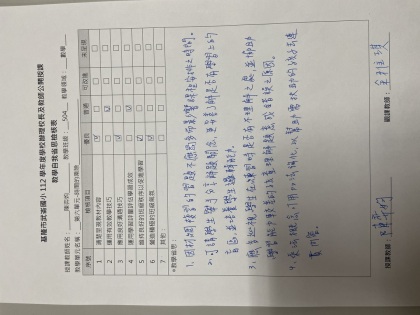 基隆市武崙國小 112 學年度學校辦理校長及教師公開授課
教學自我省思檢核表
授課教師姓名：陳弈昀 教學班級：504 教學領域：數學
教學單元名稱：第六單元-時間的乘除
序號 檢核項目 優良 普通 可改進 未呈現
1 清楚呈現教材內容 ☑ □ □ □
2 運用有效教學技巧 □ ☑ □ □
3 應用良好溝通技巧 ☑ □ □ □
4 運用學習評量評估學習成效 □ ☑ □ □
5 維持良好的班級秩序以促進學習 ☑ □ □ □
6 營造積極的班級氣氛 ☑ □ □ □
7 其他： □ □ □ □
◎教學省思：
1. 因材網複習的習題不應過多而影響課程安排之時間。
2. 可請學生舉手分享解題關念，更可了解是否有學習上的
盲區，並培養學生邏輯能力。
3. 應多巡視學生在練習時是否有不理解之處，並協助
學習能力較差的孩童理解題意或錯誤之原因。
4. 乘法概念可用加法強化，以幫助需扶助的孩子去連
貫內容。
授課教師：陳弈昀 觀課教師：